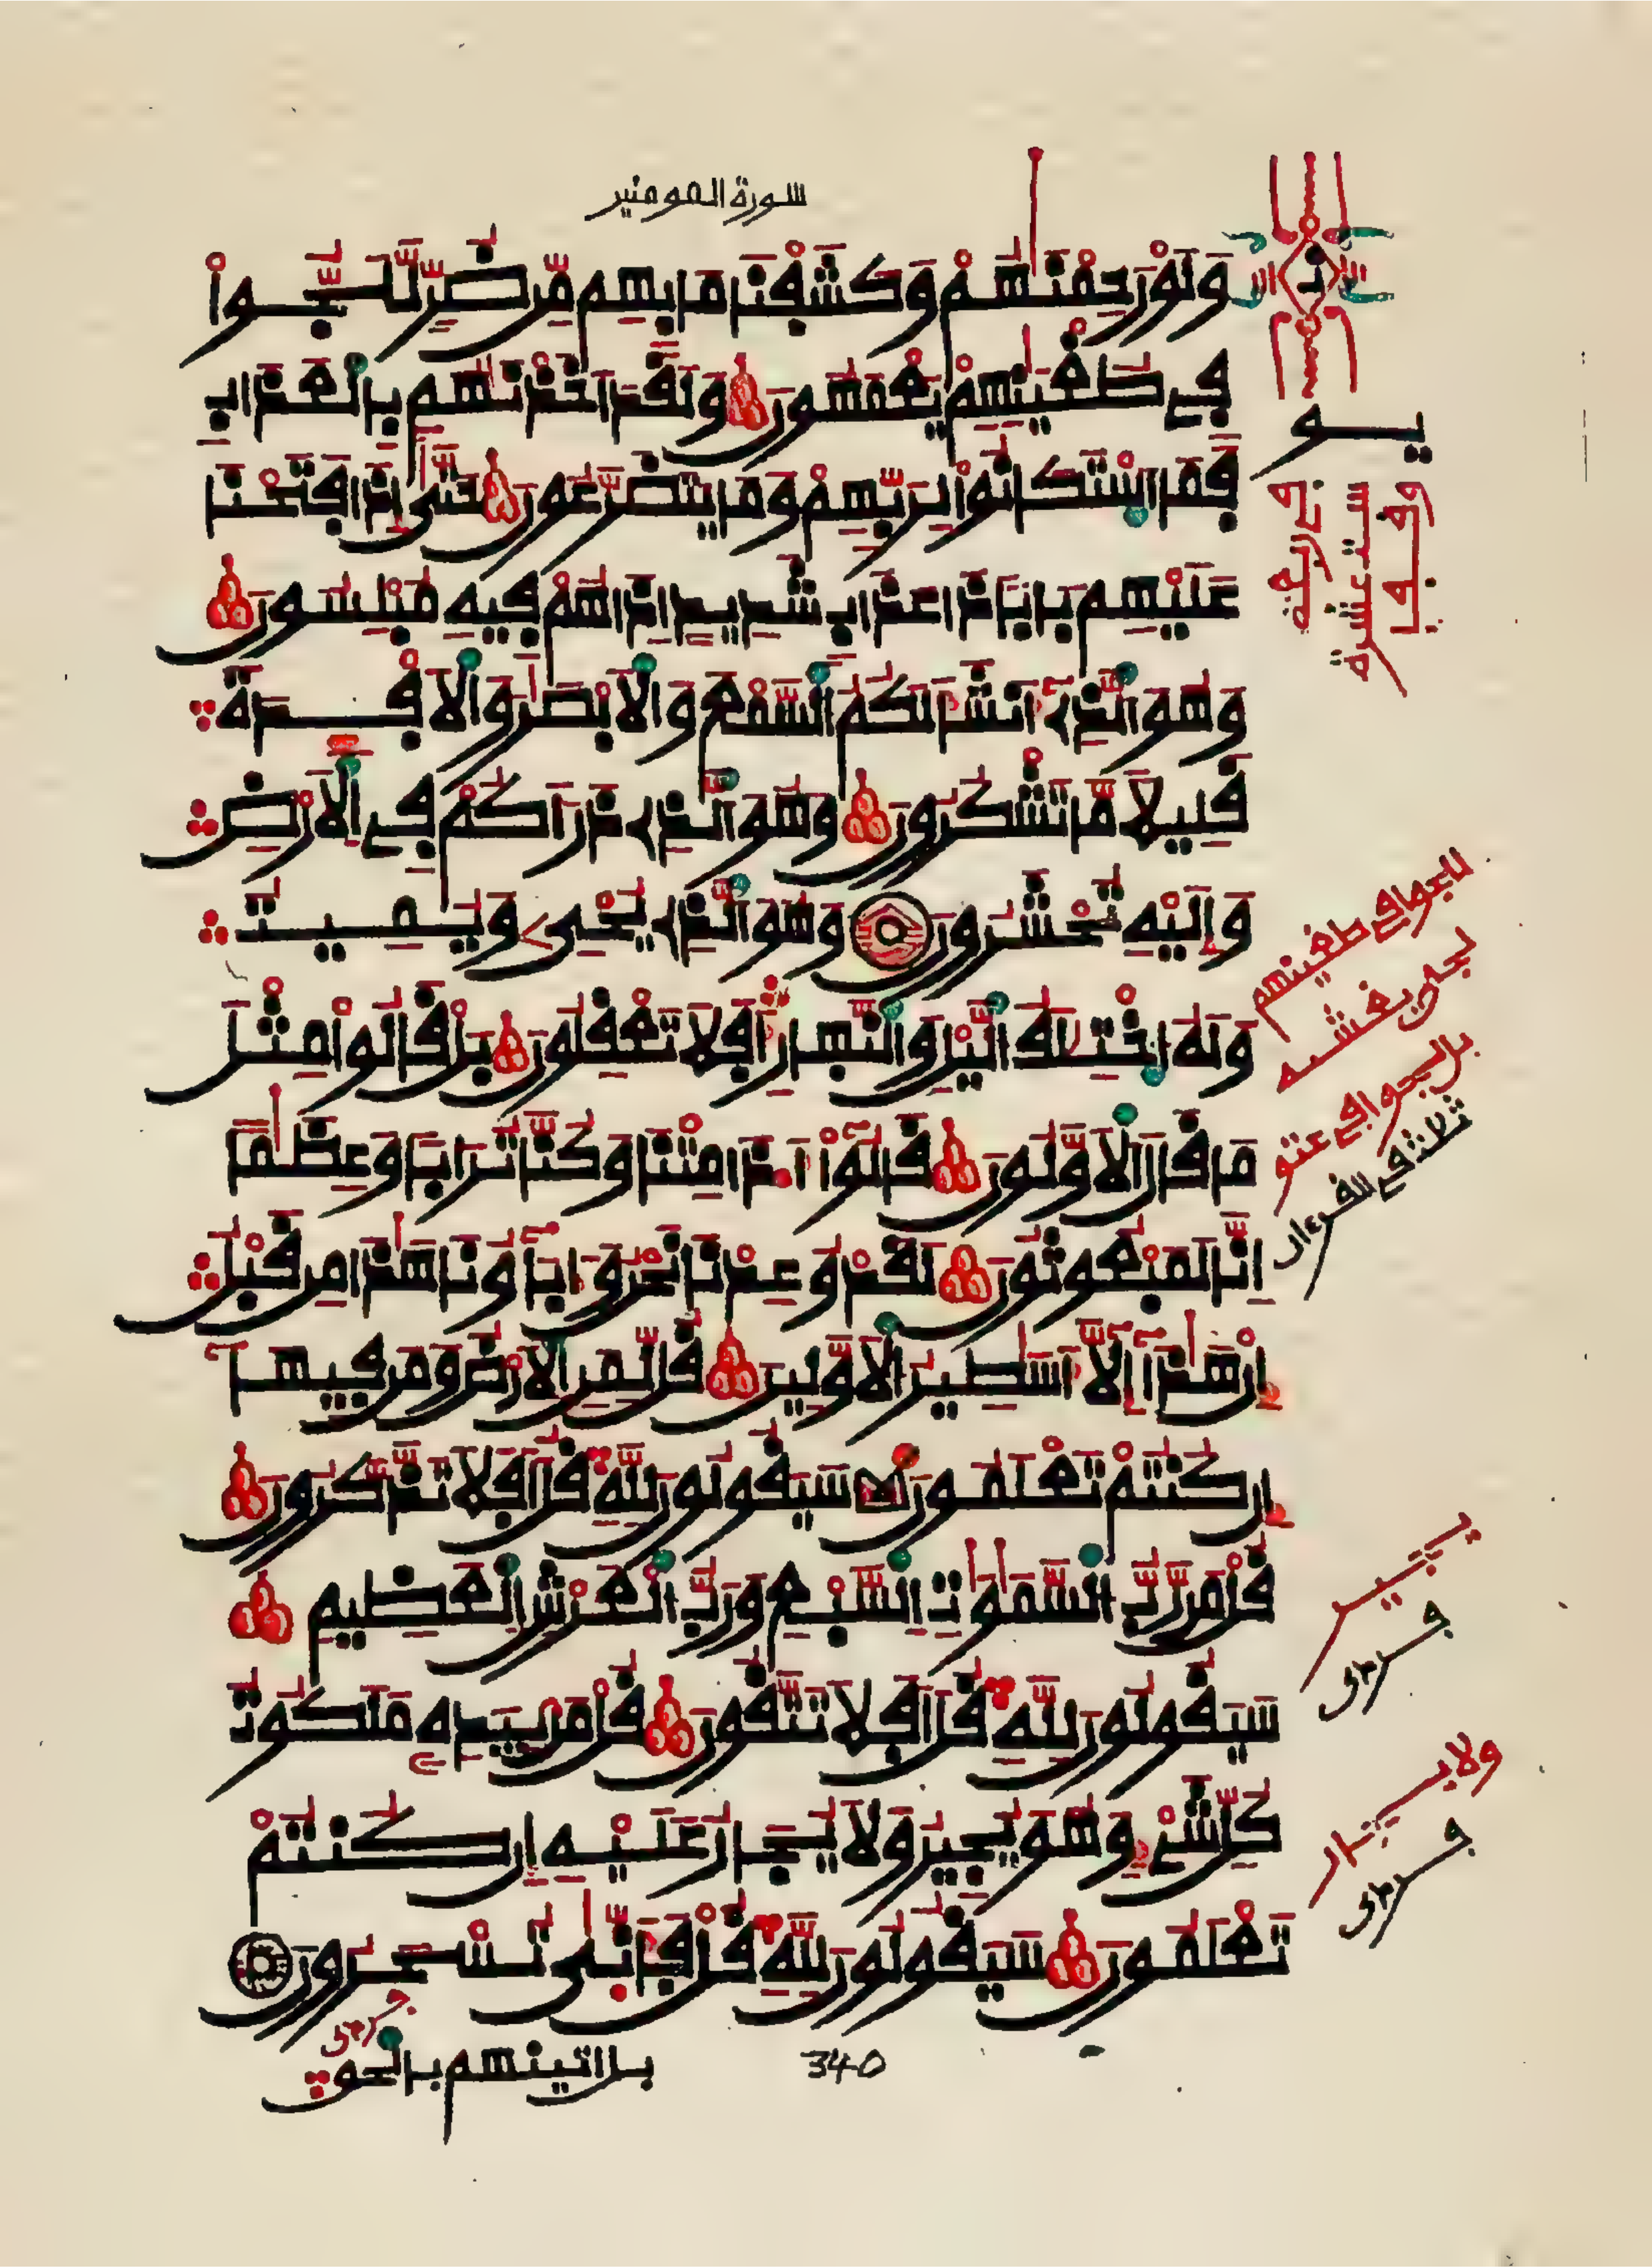 سورة المومنين
وَلَوْ رَحِمْنَٰهُمْ وَكَشَفْنَا مَا بِهِم مِّن ضُرٍّ لَّلَجُّواْ
فِي طُغْيَٰنِهِمْ يَعْمَهُونَ وَلَقَدَ اَخَذْنَٰهُم بِالْعَذَابِ
فَمَا اَسْتَكَانُواْ لِرَبِّهِمْ وَمَا يَتَضَرَّعُونَ حَتَّىٰ إِذَا فَتَحْنَا
عَلَيْهِم بَابًا ذَا عَذَابٍ شَدِيدٍ اِذَا هُمْ فِيهِ مُبْلِسُونَ
وَهُوَ الذِے أَنشَأَ لَكُمُ السَّمْعَ وَالَابْصَٰرَ وَالَافْـِٕدَةَ
قَلِيلًا مَّا تَشْكُرُونَ وَهُوَ الذِے ذَرَأَكُمْ فِي الَارْضِ
وَإِلَيْهِ تُحْشَرُونَ وَهُوَ الذِے يُحْيِۦ وَيُمِيتُ
وَلَهُ اُخْتِلَٰفُ اليْلِ وَالنَّهَارِ أَفَلَا تَعْقِلُونَ بَلْ قَالُواْ مِثْلَ
مَا قَالَ الَاوَّلُونَ قَالُوٓاْ أَ.ذَا مِتْنَا وَكُنَّا تُرَابًا وَعِظَٰمًا
اِنَّا لَمَبْعُوثُونَ لَقَدْ وُعِدْنَا نَحْنُ وَءَابَآؤُنَا هَٰذَا مِن قَبْلُ
إِنْ هَٰذَآ إِلَّآ أَسَٰطِيرُ الَاوَّلِينَ قُل لِّمَنِ الَارْضُ وَمَن فِيهَآ
إِن كُنتُمْ تَعْلَمُونَ سَيَقُولُونَ لِلهِ قُلَ اَفَلَا تَذَّكَّرُونَ
قُلْ مَن رَّبُّ السَّمَٰوَٰتِ السَّبْعِ وَرَبُّ الْعَرْشِ الْعَظِيمِ
سَيَقُولُونَ لِلهِ قُلَ اَفَلَا تَتَّقُونَ قُلْ مَنۢ بِيَدِهِۦ مَلَكُوتُ
كُلِّ شَےْءٍ وَهُوَ يُجِيرُ وَلَا يُجَارُ عَلَيْهِ إِن كُنتُمْ
تَعْلَمُونَ سَيَقُولُونَ لِلهِ قُلْ فَأَنَّىٰ تُسْحَرُونَ
بل اتينهم بالحق
340
للجوا في طغينهم
بل لجوا في عتو
ثلاثة في القرءان